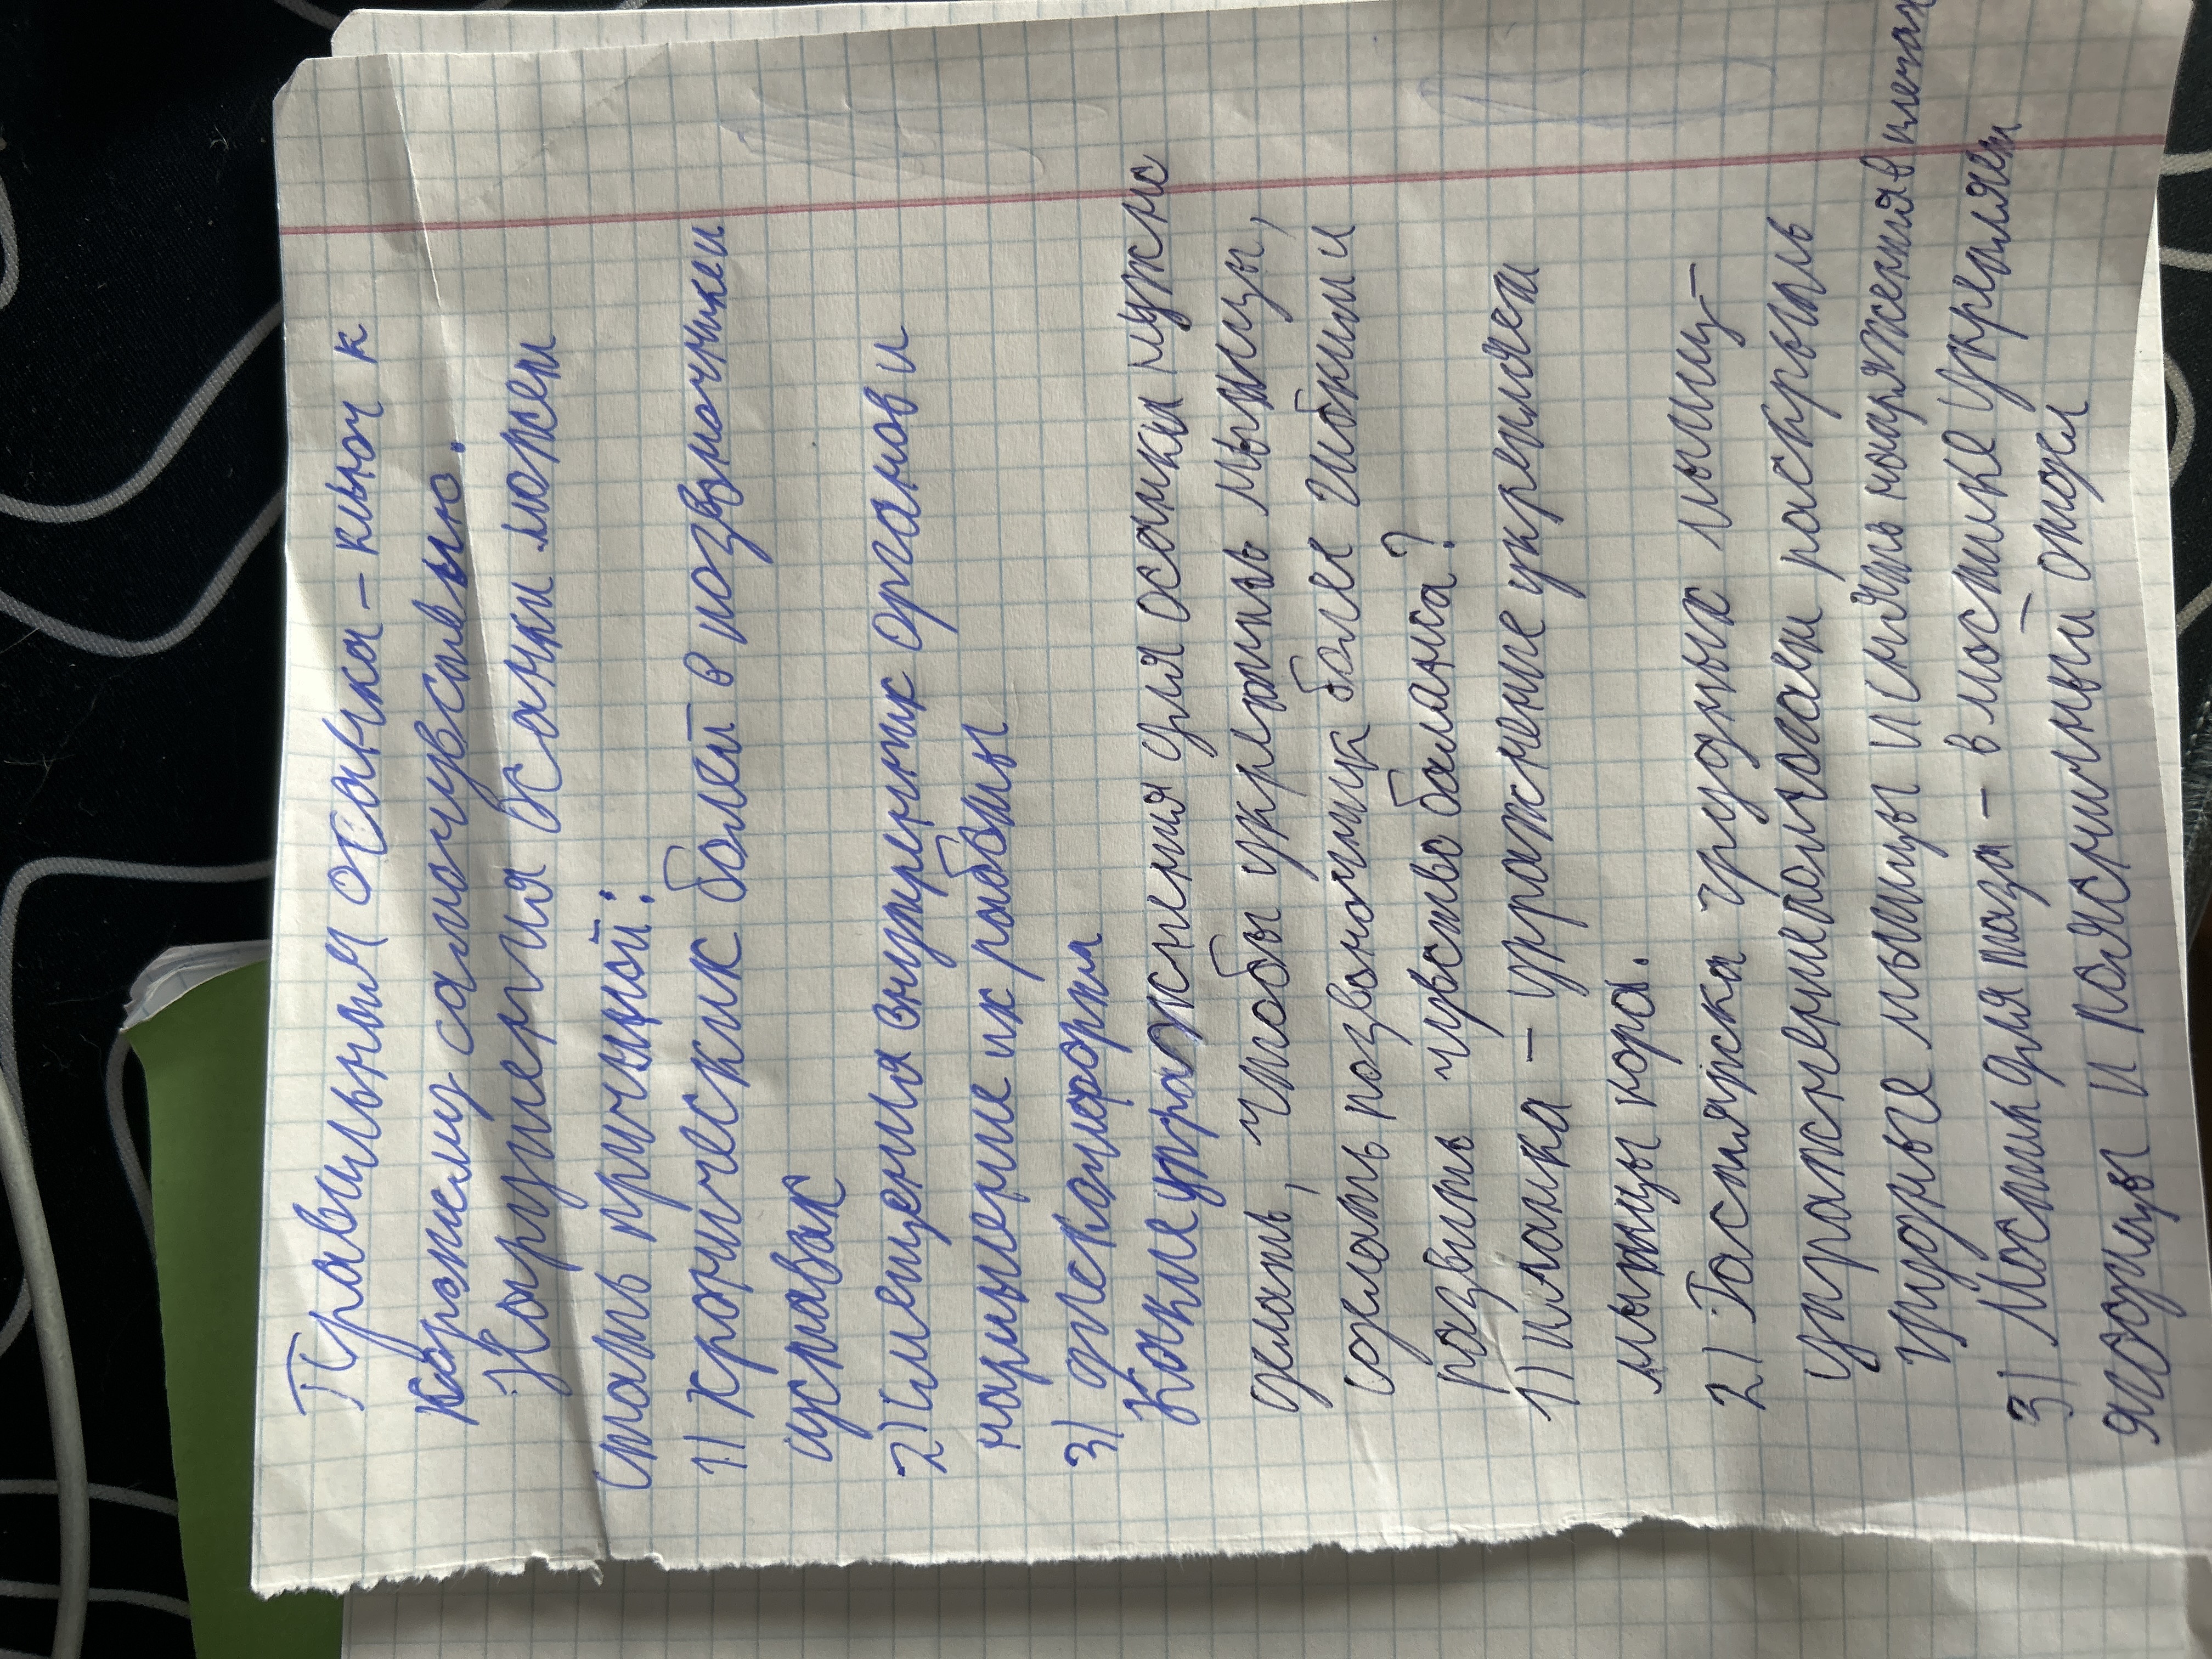 Правильная осанка – ключ к
хорошему самочувствию.
Нарушения осанки может
стать причиной:
1) Хронических болей в позвоночнике и
суставах
2) смещения внутренних органов и
нарушение их работы
3) дискомфорта
Какие упражнения для осанки нужно
делать, чтобы укрепить мышцы,
сделать позвоночник более гибким и
развить чувство баланса?
1) планка – упражнение укрепляет
мышцы кора.
2) Растяжка грудных мышц –
упражнение помогает раскрыть
грудные мышцы и снять напряжения в плечах
3) Мостик для таза – в мостике укрепляем
ягодицы и поясничный отдел